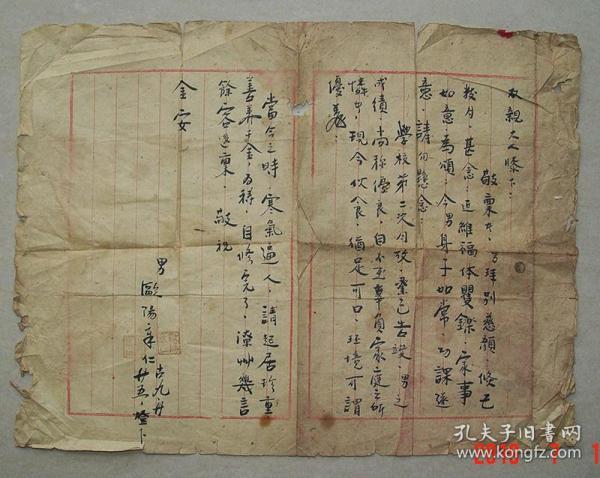 双親大人膝下：
敬稟者，男拜別慈顏，倏已
數月，甚念。近維福体矍鑠，家事
如意，為頌。今男身子如常，功課遂
意，請勿懸念：
學校第二次月攷，業已告竣，男之
成績，尚称優良，自不至辜負家庭之所
憐也，現今伙食，猶足可口，环境可謂
優美：
當今之時，寒氣逼人，請起居珍重
善养千金，為禱，自修完了，潦艸幾言
餘容後稟，敬祝
金安
男 歐陽 仁
廿五，燈下
孔夫子旧书网
www.kongfz.com